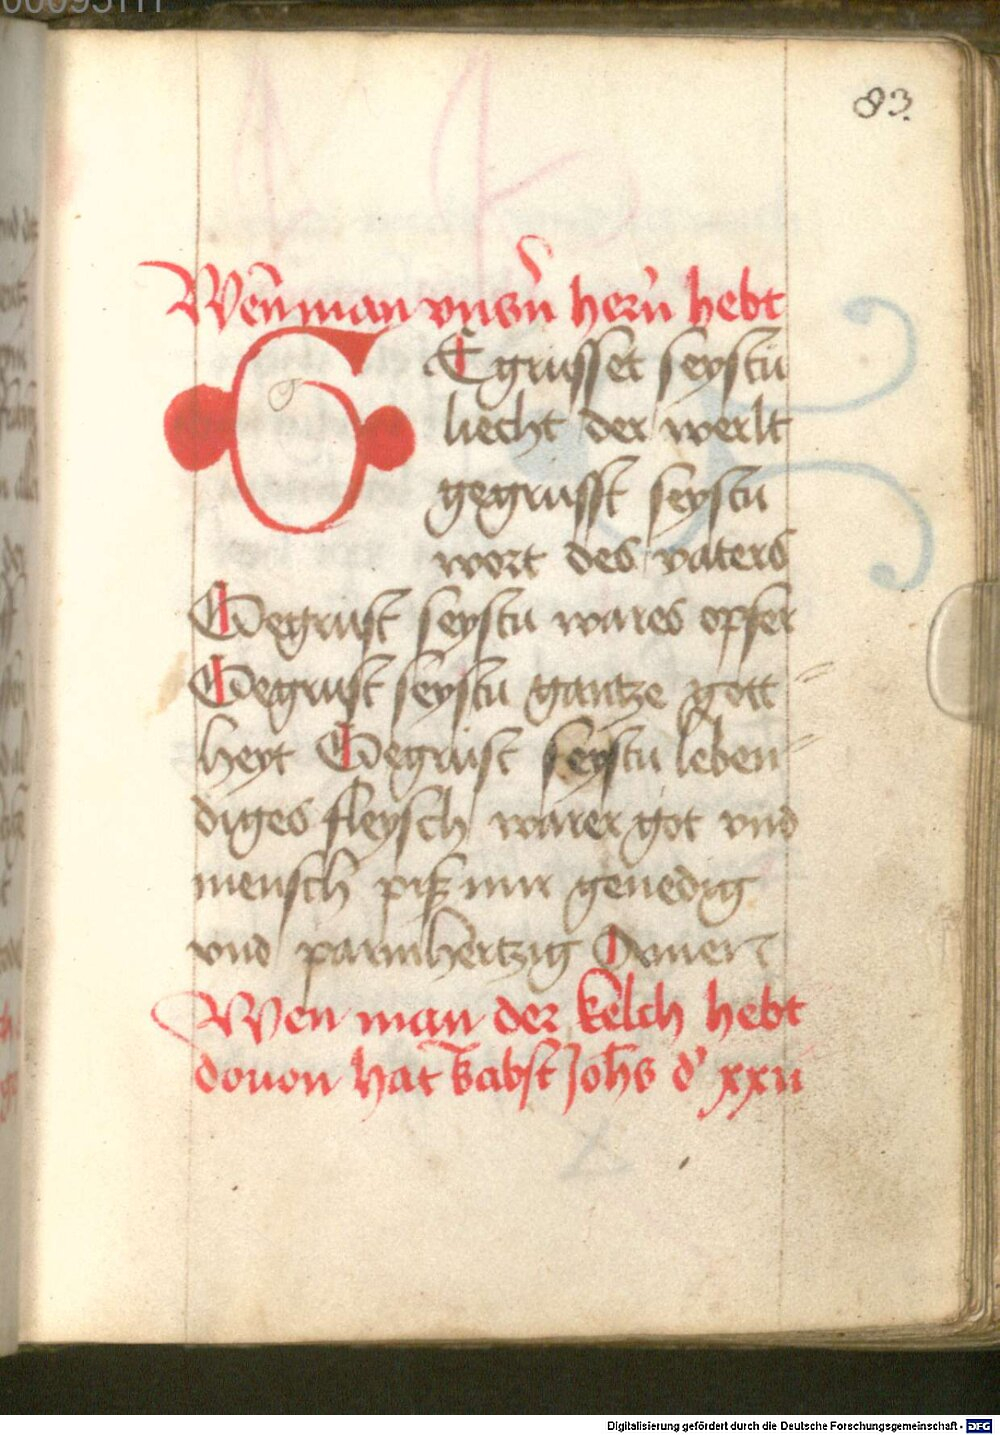 00095111
83.
Wen̄ man vnsn̄ hern̄ hebt
GEgrusset seystu
liecht der werlt
gegrusst seystu
wort des vaters
Gegrust seystu wares opfer
Gegrust seystu gantze gott
heyt Gegrust seystu leben
diges fleysch warer got vnd
mensch piß mir genedig
vnd parmhertzig Amen
Wen man der kelch hebt
douon hat babst Joh̄s d' xxii
Digitalisierung gefördert durch die Deutsche Forschungsgemeinschaft - DFG